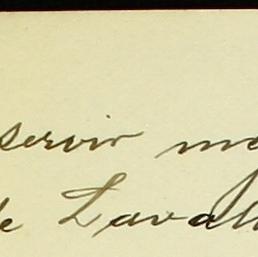 servir me
de Lavall